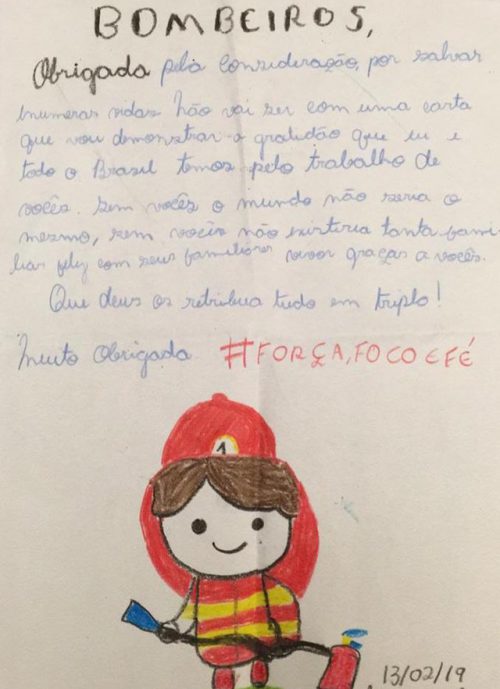 BOMBEIROS,
Obrigada pela consideração, por salvar
inumeras vidas. Não vai ser com uma carta
que vou demonstrar a gratidão que eu e
todo o Brasil temos pelo trabalho de
vocês. Sem vocês o mundo não seria o
mesmo, sem vocês não existiria tanta famí
lias feliz com seus familiares vivos graças a vocês.
Que deus os retribua tudo em triplo!
Muito Obrigada #FORÇA, FOCO E FÉ
1
13/02/19